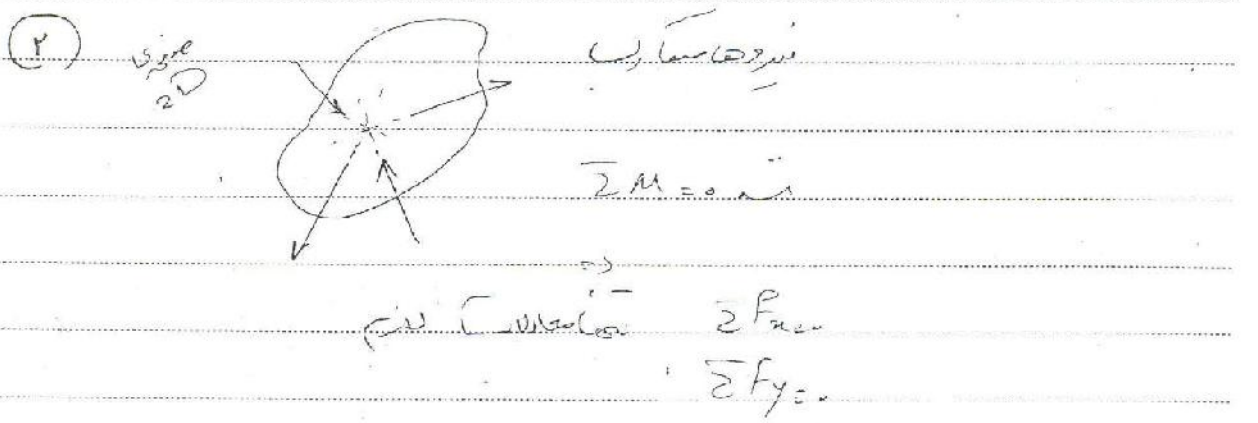 ۲
صفحه‌ای
2D
نیروها متقارب
ΣM=0
تنها معادلات لازم ΣFx=0
ΣFy=0